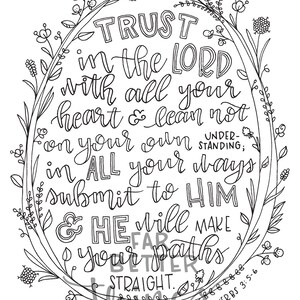 TRUST
in the LORD
with all your
heart & lean not
on your own UNDER-
STANDING;
in ALL your ways
submit to HIM
& HE will MAKE
your paths
STRAIGHT.
FAR
BETTER
3:5-6